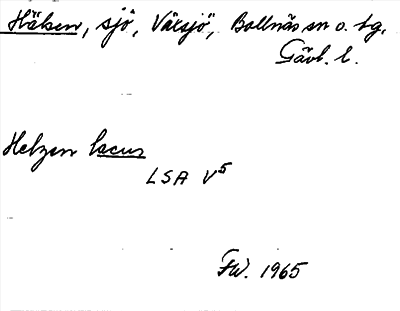 Häken, sjö, Växsjö, Bollnäs sn o. tg,
Gävl. l.
Helzen lacus
LSA V5
FW. 1965